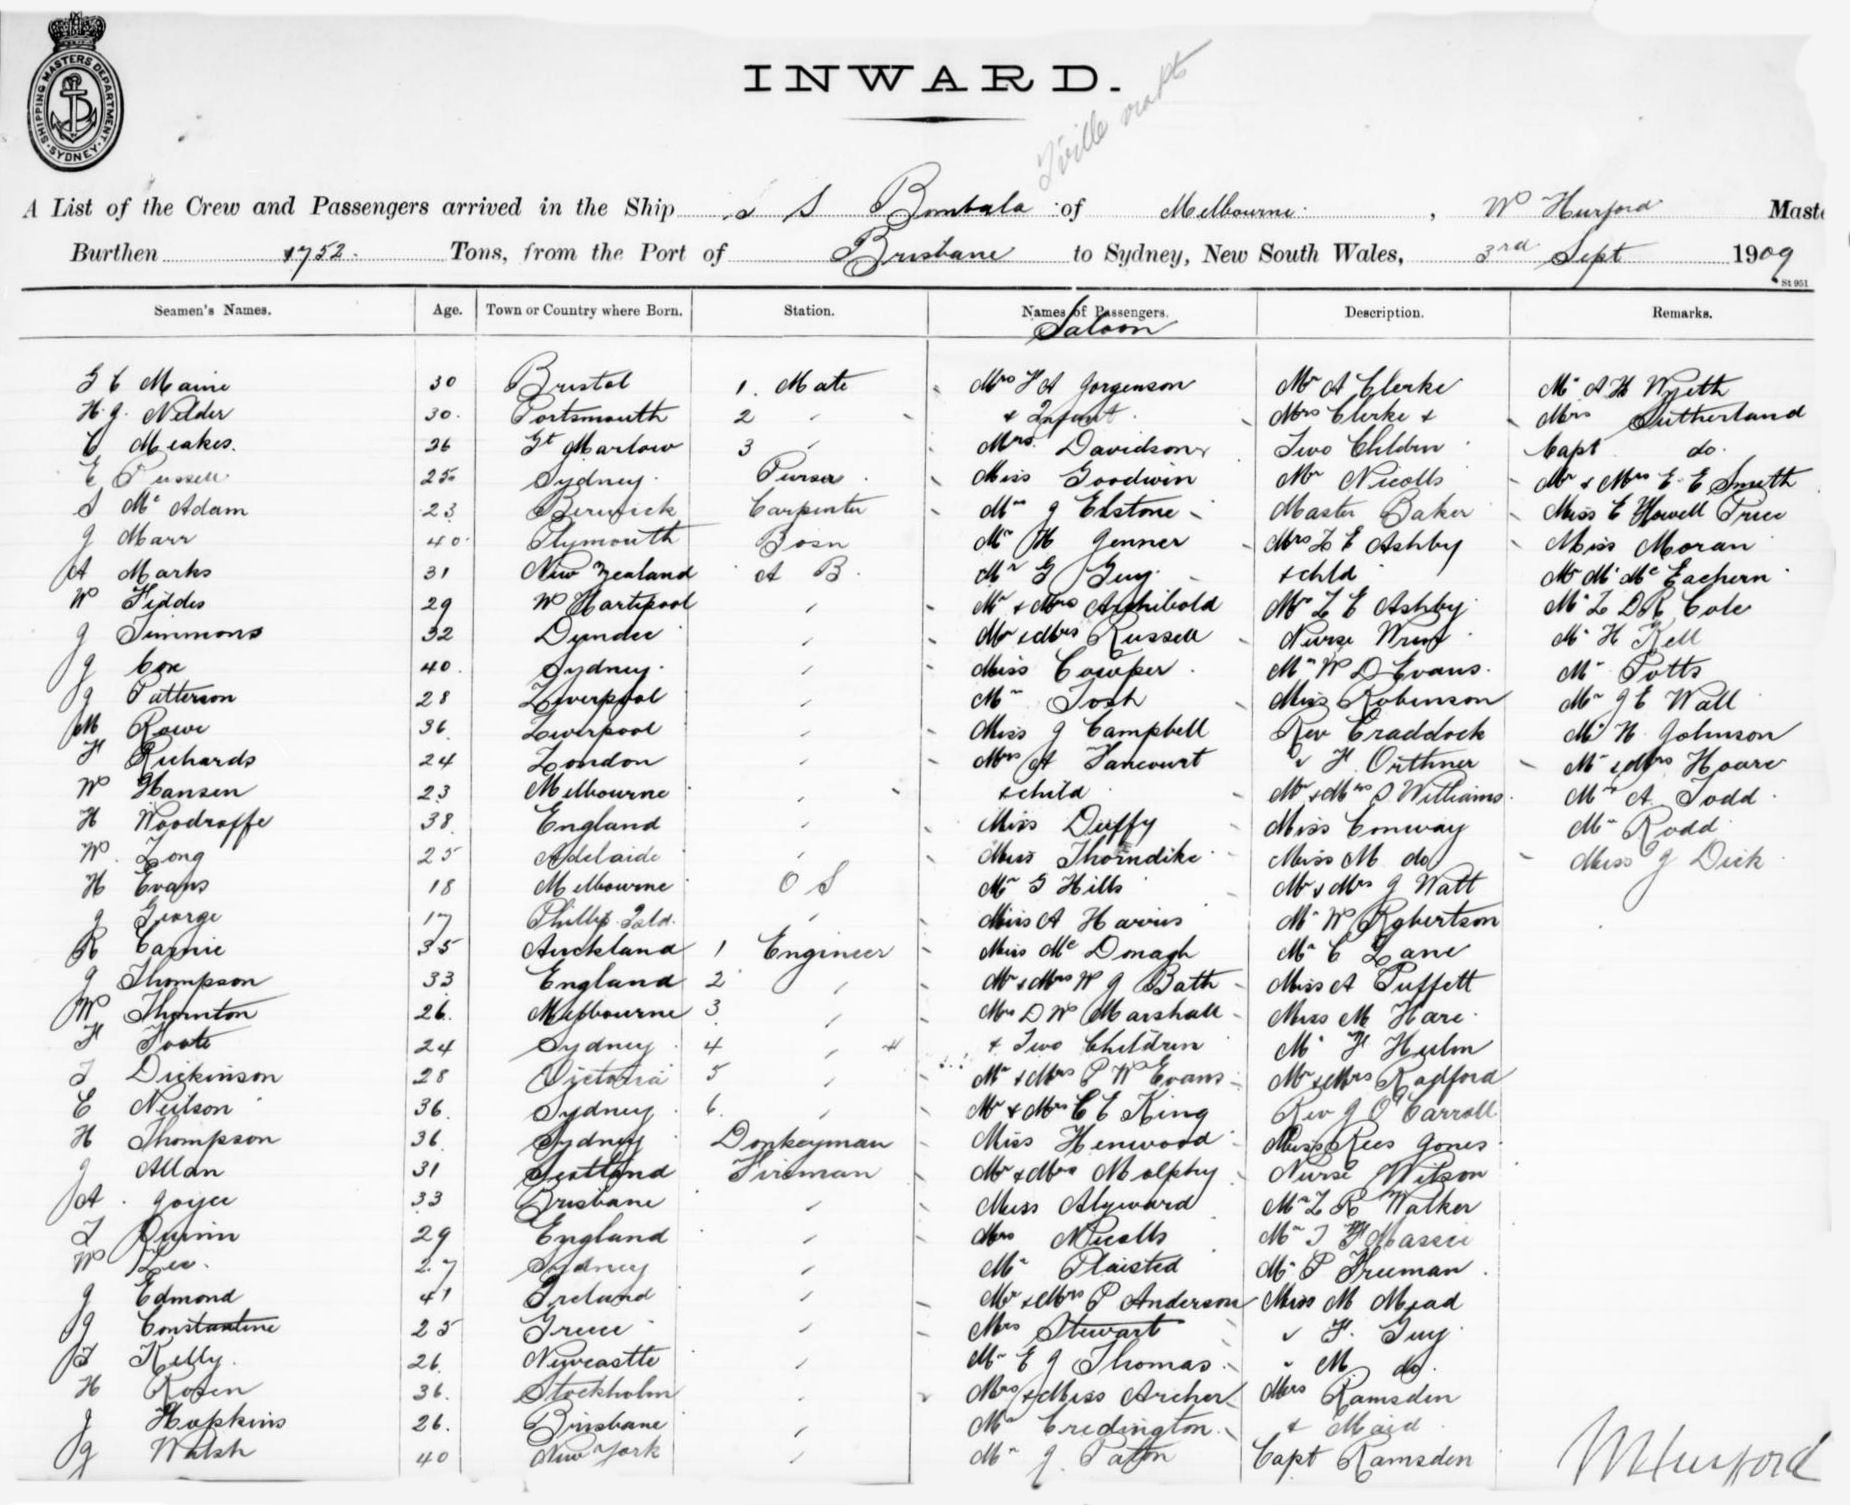 SHIPPING MASTERS DEPARTMENT. SYDNEY.
INWARD.
A List of the Crew and Passengers arrived in the Ship S S Bombala of Melbourne, Wm Hurford Maste
Burthen 1752. Tons, from the Port of Brisbane to Sydney, New South Wales, 3rd Sept 1909
St 951
Seamen's Names. Age. Town or Country where Born. Station. Names of Passengers. Description. Remarks.
Saloon
G C Maine 30 Bristol 1. Mate Mrs H A Jorgenson Mr A Clerke Mr A H Wyeth
H. J. Nelder 30. Portsmouth 2 " & Infant. Mrs Clerke & Mrs Sutherland
C Meakes. 26 Gt Marlow 3 " Mrs. Davidson Two Children Capt do.
E Pussell 25 Sydney Purser Miss Goodwin Mr Nicolls Mr & Mrs E. E Smith
S Mc Adam 23 Berwick Carpenter Mr J Elstone Master Baker Miss E Howell Price
J Marr 40 Plymouth Bosn Mr H Jenner Mrs L E Ashby Miss Moran
A Marks 31 New Zealand A B. Mr G Guy & chld Mr M. Mc Eachern
W Fiddes 29 W Hartlpool " Mr & Mrs Archibold Mr L E Ashby Mr L D R Cole
J Simmons 32 Dundee " Mr & Mrs Russell Nurse Mr H Kell
J Cox 40. Sydney. " Miss Cowper Mr W D Evans. Mr Potts
J Patterson 28 Liverpool " Mr Tosh Miss Robinson Mr J E Wall
M Rowe 36 Liverpool " Miss J Campbell Rev Craddock Mr H Johnson
F Richards 24 London " Mrs A Fancourt " F Orthner Mr & Mrs Hoare
W Hansen 23 Melbourne " & child Mr & Mrs S Williams Mr A Todd
H Woodroffe 38 England " Miss Duffy Miss Conway Mr Rodd
W. Long 25 Adelaide " Miss Thorndike Miss M do Miss J Dick
H Evans 18 Melbourne O S Mr G Hills Mr & Mrs J Watt
J George 17 Phillip Isld. " Miss A Harris Mr W Robertson
R Carnie 35 Auckland 1 Engineer Miss Mc Donagh Mr C Lane
J Thompson 33 England 2 " Mr & Mrs W J Bath Miss A Puffett
W Thornton 26. Melbourne 3 " Mrs D W Marshall Miss M Hare
F Foote 24 Sydney 4 " & Two Children Mr F Hulm
T Dickinson 28 Victoria 5 " Mr & Mrs P W Evans Mr & Mrs Radford
C Neilson 36 Sydney 6. " Mr & Mrs C E King Rev J O'Carroll
H Thompson 36 Sydney Donkeyman Miss Henwood Miss Rees Jones
J Allan 31 Scotland Fireman Mr & Mrs Molphy Nurse Wilson
A Joyce 33 Brisbane " Miss Alyward Mr L R Walker
T Quinn 29 England " Mrs Nicolls Mr T H Massie
W Lee. 27 Sydney " Mr Plaisted Mr P Freeman
J Edmond 41 Ireland " Mr & Mrs P Anderson Miss M Mead
J Constantine 25 Greece " Mrs Stewart " F. Guy
T Kelly. 26 Newcastle " Mr E J Thomas " M do.
H Rosen 36. Stockholm " Mrs & Miss Archer Mrs Ramsden
J Hopkins 26. Brisbane " Mr Credington & Maid
J Walsh 40 New York " Mr J. Paton Capt Ramsden
W Hurford